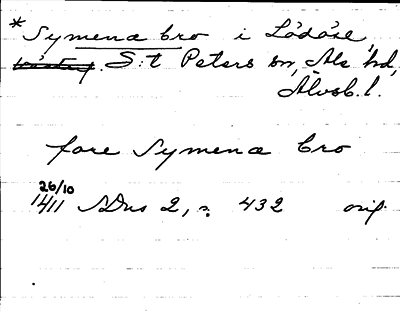 *Symenæ bro i Lödöse,
S:t Peters sn, Ale hd,
Älvsb. l.
fore Symenæ bro
26/10
1411 SDns 2, s. 432 orig.